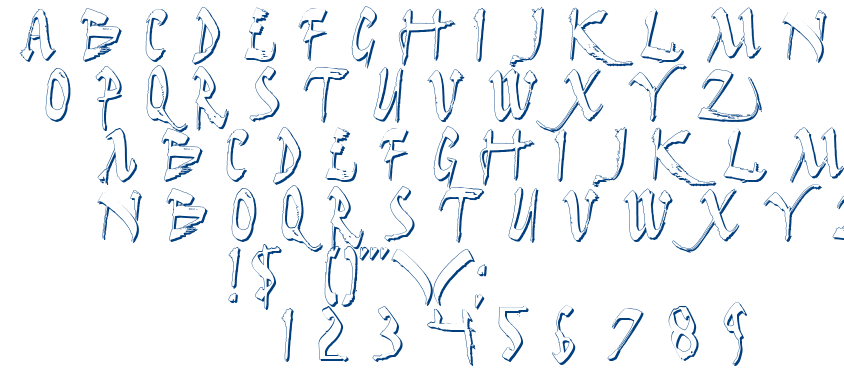 A B C D E F G H I J K L M N
O P Q R S T U V W X Y Z
A B C D E F G H I J K L M
N B O Q R S T U V W X Y Z
! $ ( ) " ' \ / ;
1 2 3 4 5 6 7 8 9